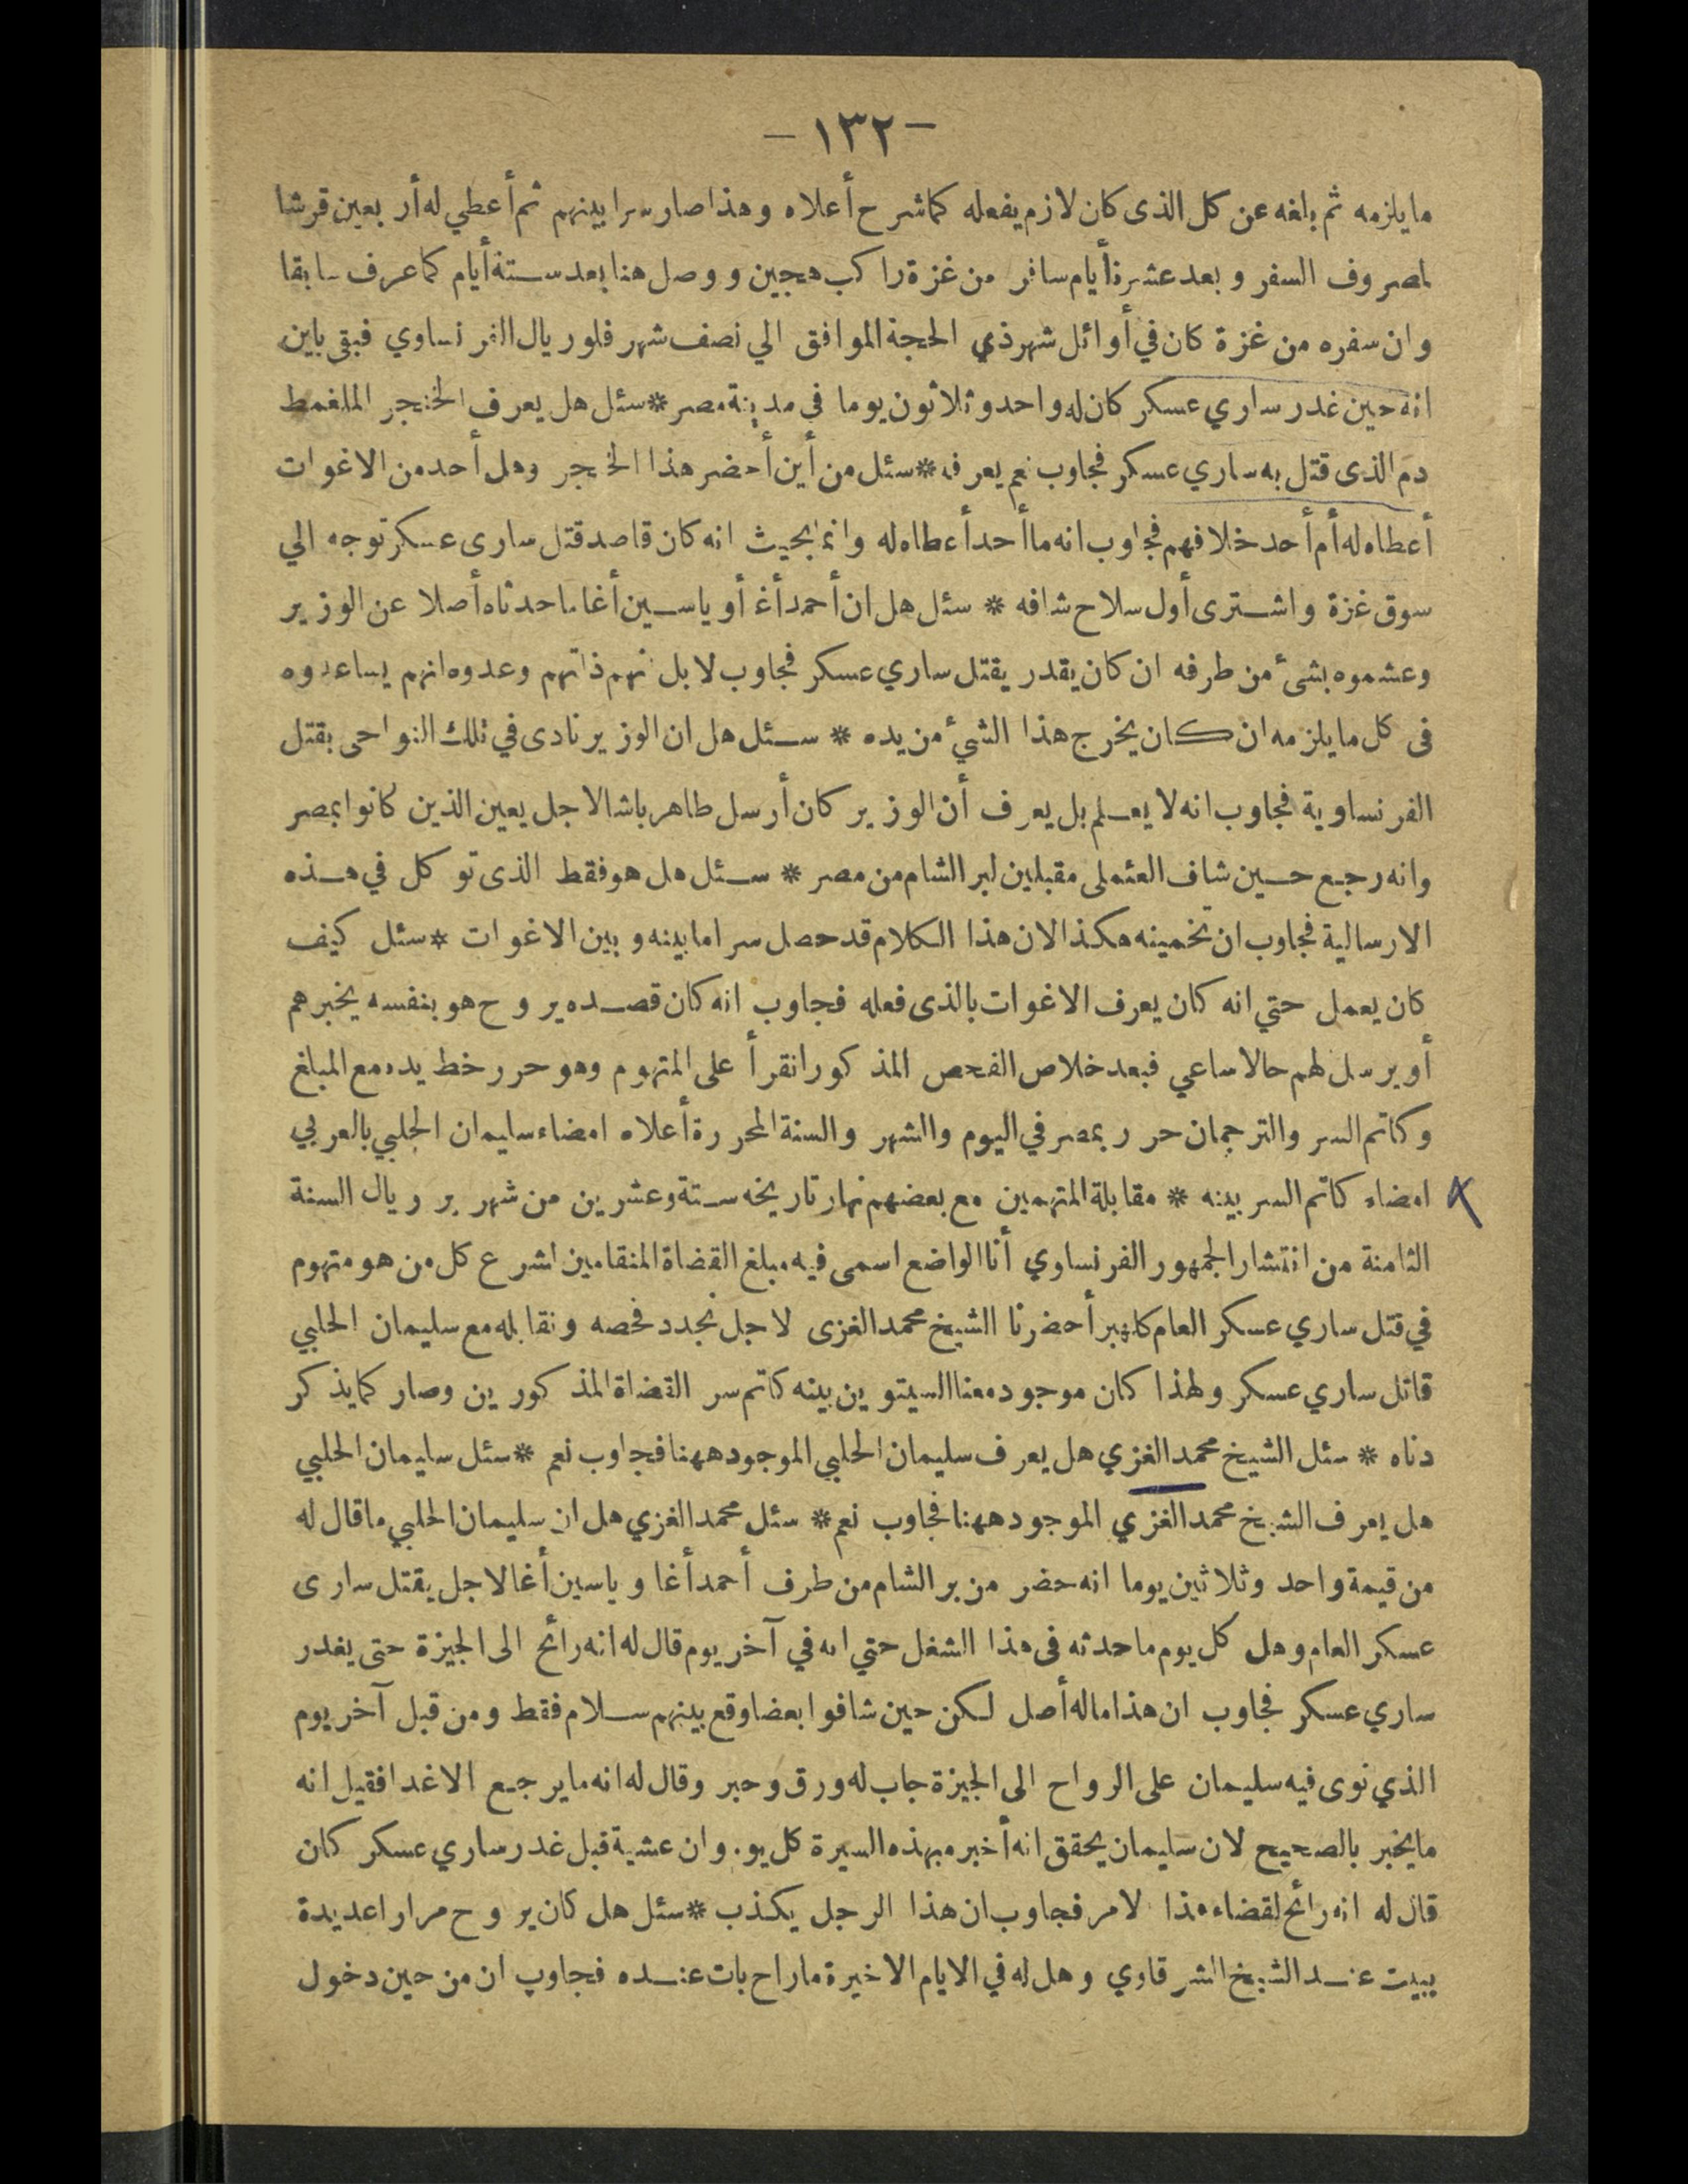 — ١٣٢ —
ما يلزمه ثم بلغه عن كل الذى كان لازم يفعله كما شرح أعلاه وهذا صار سرا بينهم ثم أعطي له أربعين قرشا
لمصروف السفر وبعد عشرة أيام سافر من غزة راكب هجين ووصل هنا بعد ستة أيام كما عرف سابقا
وان سفره من غزة كان في أوائل شهر ذي الحجة الموافق الي نصف شهر فلوريال الفرنساوي فبقى باين
انه حين غدر ساري عسكر كان له واحد وثلاثون يوما في مدينة مصر * سئل هل يعرف الخنجر الملغمط
دم الذى قتل به ساري عسكر فجاوب نعم يعرفه * سئل من أين أحضر هذا الخنجر وهل أحد من الاغوات
أعطاه له أم أحد خلافهم فجاوب انه ما أحد أعطاه له وانما بحيث انه كان قاصد قتل سارى عسكر توجه الي
سوق غزة واشترى أول سلاح شافه * سئل هل ان أحمد أغا أو ياسين أغا ما حدثاه أصلا عن الوزير
وعشموه بشئ من طرفه ان كان يقدر يقتل ساري عسكر فجاوب لا بل نهم ذاتهم وعدوه انهم يساعدوه
فى كل ما يلزمه ان كان يخرج هذا الشئ من يده * سئل هل ان الوزير نادى في تلك النواحى بقتل
الفرنساوية فجاوب انه لا يعلم بل يعرف أن الوزير كان أرسل طاهر باشا لاجل يعين الذين كانوا بمصر
وانه رجع حين شاف العثملى مقبلين لبر الشام من مصر * سئل هل هو فقط الذى توكل في هذه
الارسالية فجاوب ان تخمينه هكذا لان هذا الكلام قد حصل سرا ما بينه وبين الاغوات * سئل كيف
كان يعمل حتي انه كان يعرف الاغوات بالذى فعله فجاوب انه كان قصده يروح هو بنفسه يخبرهم
أو يرسل لهم حالا ساعي فبعد خلاص الفحص المذكور انقرأ على المتهوم وهو حرر خط يده مع المبلغ
وكاتم السر والترجمان حرر بمصر في اليوم والشهر والسنة المحررة أعلاه امضاء سليمان الحلبي بالعربي
امضاء كاتم السر بينه * مقابلة المتهمين مع بعضهم نهار تاريخه ستة وعشرين من شهر بروريال السنة
الثامنة من انتشار الجمهور الفرنساوي أنا الواضع اسمى فيه مبلغ القضاة المنقامين لشرع كل من هو متهوم
في قتل ساري عسكر العام كلهبر أحضرنا الشيخ محمد الغزى لاجل نجدد فحصه ونقابله مع سليمان الحلبي
قاتل ساري عسكر ولهذا كان موجود معنا السيتوين بينه كاتم سر القضاة المذكورين وصار كما يذكر
دناه * سئل الشيخ محمد الغزي هل يعرف سليمان الحلبي الموجود ههنا فجاوب نعم * سئل سليمان الحلبي
هل يعرف الشيخ محمد الغزي الموجود ههنا فجاوب نعم * سئل محمد الغزي هل ان سليمان الحلبي ما قال له
من قيمة واحد وثلاثين يوما انه حضر من بر الشام من طرف أحمد أغا وياسين أغا لاجل يقتل سارى
عسكر العام وهل كل يوم ما حدثه فى هذا الشغل حتي انه في آخر يوم قال له انه رائح الى الجيزة حتى يغدر
ساري عسكر فجاوب ان هذا ما له أصل لكن حين شافوا بعضا وقع بينهم سلام فقط ومن قبل آخر يوم
الذي نوى فيه سليمان على الرواح الى الجيزة جاب له ورق وحبر وقال له انه ما يرجع الا غدا فقيل انه
ما يخبر بالصحيح لان سليمان يحقق انه أخبره بهذه السيرة كل يو. وان عشية قبل غدر ساري عسكر كان
قال له انه رائح لقضاء هذا لامر فجاوب ان هذا الرجل يكذب * سئل هل كان يروح مرارا عديدة
يبيت عند الشيخ الشرقاوي وهل له في الايام الاخيرة ما راح بات عنده فجاوب ان من حين دخول